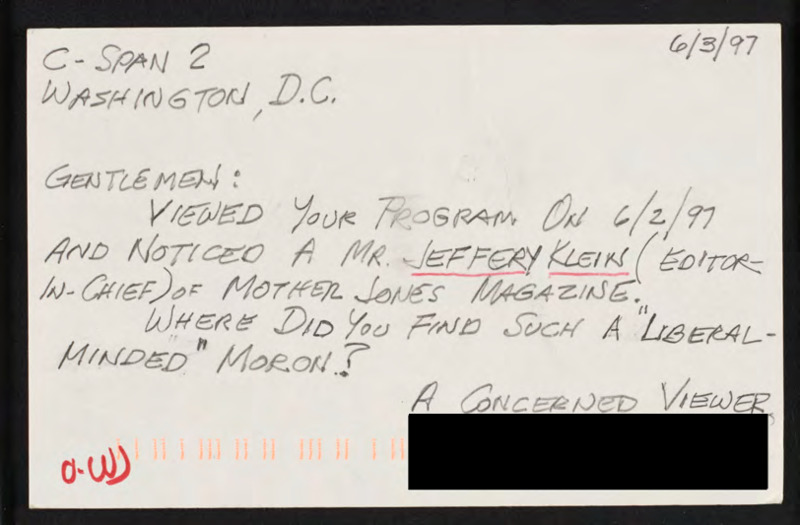 6/3/97
C-SPAN 2
WASHINGTON, D.C.
GENTLEMEN:
VIEWED YOUR PROGRAM ON 6/2/97
AND NOTICED A MR. JEFFERY KLEIN (EDITOR-
IN-CHIEF) OF MOTHER JONES MAGAZINE.
WHERE DID YOU FIND SUCH A "LIBERAL-
MINDED" MORON?
A CONCERNED VIEWER